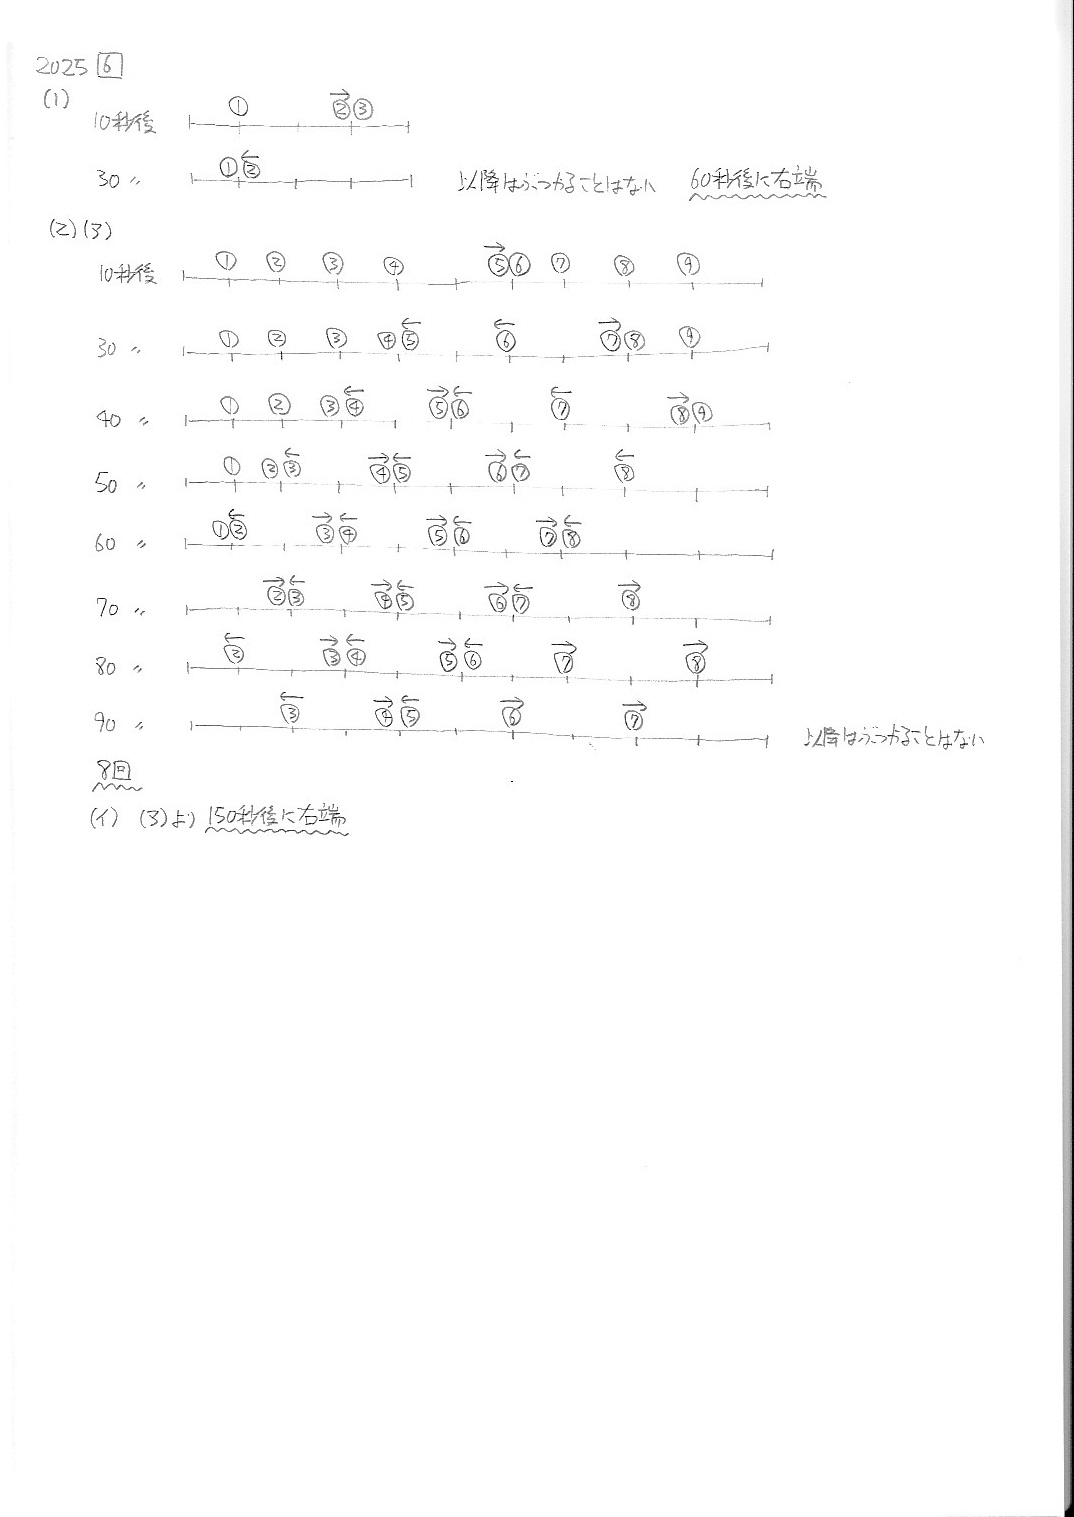 2025 6
(1)
10秒後 ① ②③
30 〃 ①② 以降はぶつかることはない 60秒後に右端
(2)(3)
10秒後 ① ② ③ ④ ⑤⑥ ⑦ ⑧ ⑨
30 〃 ① ② ③ ④⑤ ⑥ ⑦⑧ ⑨
40 〃 ① ② ③④ ⑤⑥ ⑦ ⑧⑨
50 〃 ① ②③ ④⑤ ⑥⑦ ⑧
60 〃 ①② ③④ ⑤⑥ ⑦⑧
70 〃 ②③ ④⑤ ⑥⑦ ⑧
80 〃 ② ③④ ⑤⑥ ⑦ ⑧
90 〃 ③ ④⑤ ⑥ ⑦ 以降はぶつかることはない
8回
(イ) (3)より 150秒後に右端